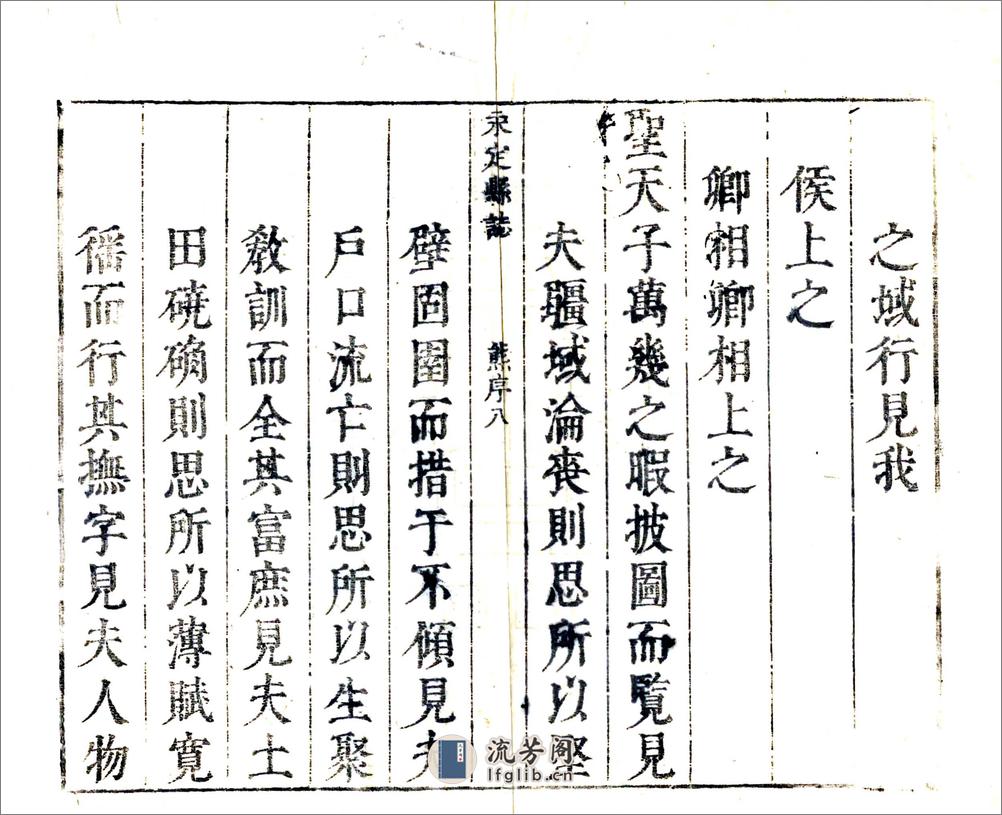 之域行見我
侯上之
卿相卿相上之
聖天子萬幾之暇披圖而覧見
夫疆域淪喪則思所以堅
永定縣誌 熊序八
壁固圉而措于不傾見夫
戶口流亡則思所以生聚
敎訓而全其富庶見夫土
田磽确則思所以薄賦寬
徭而行其撫字見夫人物
流芳阁
lfglib.cn